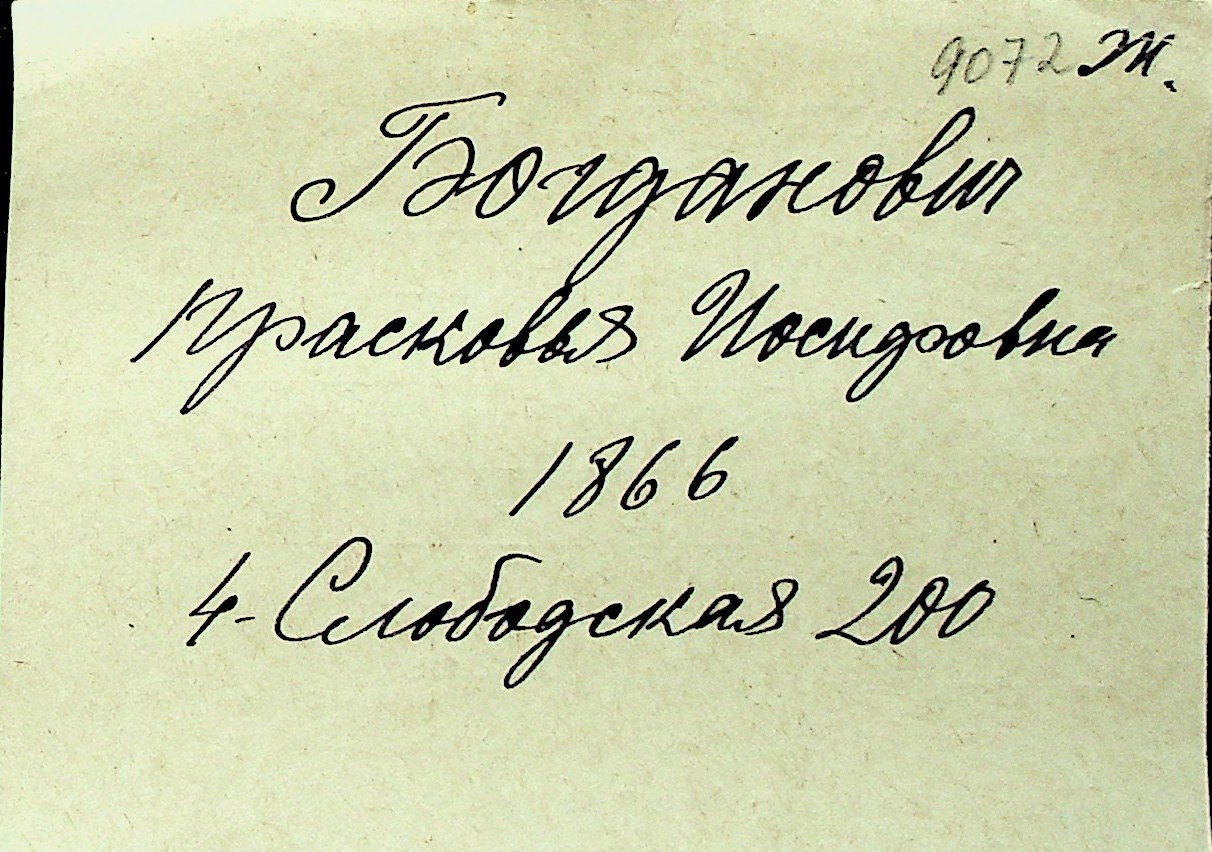 9072 Ж.
Богданович
Прасковья Иосифовна
1866
4-Слободская 200